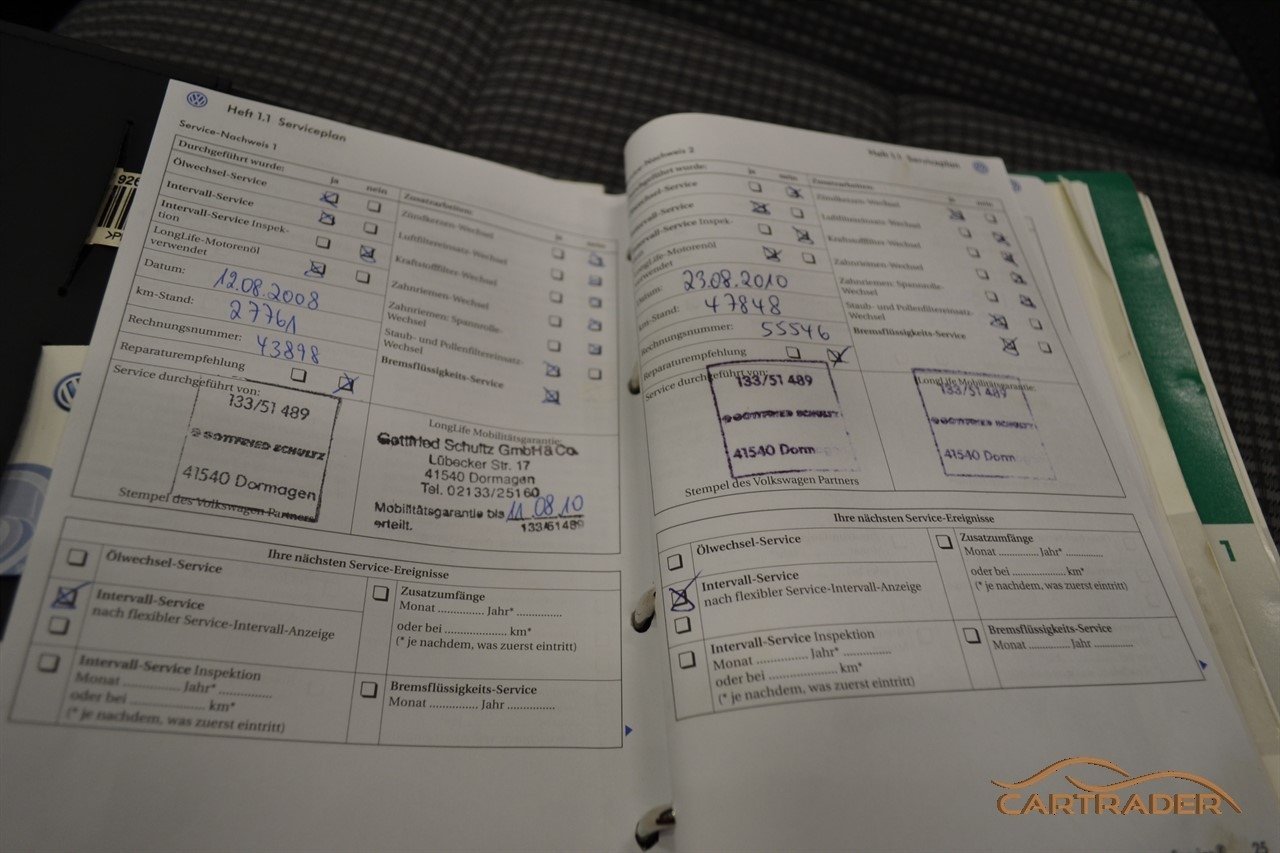 Heft 1.1 Serviceplan
Service-Nachweis 1
Durchgeführt wurde:
ja nein
Ölwechsel-Service
Intervall-Service
Intervall-Service Inspek-
tion
LongLife-Motorenöl
verwendet
Datum: 12.08.2008
km-Stand: 27761
Rechnungsnummer: 43898
Reparaturempfehlung
Zusatzarbeiten:
ja nein
Zündkerzen-Wechsel
Luftfiltereinsatz-Wechsel
Kraftstofffilter-Wechsel
Zahnriemen-Wechsel
Zahnriemen: Spannrolle-
Wechsel
Staub- und Pollenfiltereinsatz-
Wechsel
Bremsflüssigkeits-Service
Service durchgeführt von:
133/51 489
GOTTFRIED SCHULTZ
41540 Dormagen
Stempel des Volkswagen Partners
LongLife Mobilitätsgarantie:
Gottfried Schultz GmbH & Co.
Lübecker Str. 17
41540 Dormagen
Tel. 02133/25160
Mobilitätsgarantie bis 11.08.10
erteilt. 133/51489
Ihre nächsten Service-Ereignisse
Ölwechsel-Service
Intervall-Service
nach flexibler Service-Intervall-Anzeige
Intervall-Service Inspektion
Monat .............. Jahr* ..............
oder bei .................... km*
(* je nachdem, was zuerst eintritt)
Zusatzumfänge
Monat .............. Jahr* ..............
oder bei .................... km*
(* je nachdem, was zuerst eintritt)
Bremsflüssigkeits-Service
Monat .............. Jahr ..............
Heft 1.1 Serviceplan
Nachweis 2
ja nein
wechsel-Service
Intervall-Service
Intervall-Service Inspek-
LongLife-Motorenöl
verwendet
Datum: 23.08.2010
km-Stand: 47848
Rechnungsnummer: 55546
Reparaturempfehlung
Zusatzarbeiten:
ja nein
Zündkerzen-Wechsel
Luftfiltereinsatz-Wechsel
Kraftstofffilter-Wechsel
Zahnriemen-Wechsel
Zahnriemen: Spannrolle-
Wechsel
Staub- und Pollenfiltereinsatz-
Wechsel
Bremsflüssigkeits-Service
Service durchgeführt von:
133/51 489
GOTTFRIED SCHULTZ
41540 Dorm
Stempel des Volkswagen Partners
LongLife Mobilitätsgarantie:
133/51 489
GOTTFRIED SCHULTZ
41540 Dorm
Ihre nächsten Service-Ereignisse
Ölwechsel-Service
Intervall-Service
nach flexibler Service-Intervall-Anzeige
Intervall-Service Inspektion
Monat .............. Jahr* ..............
oder bei .................... km*
(* je nachdem, was zuerst eintritt)
Zusatzumfänge
Monat .............. Jahr* ..............
oder bei .................... km*
(* je nachdem, was zuerst eintritt)
Bremsflüssigkeits-Service
Monat .............. Jahr ..............
1
25
CARTRADER